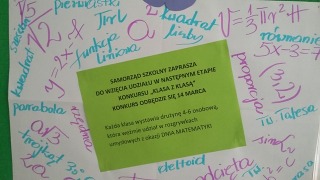 √5
pierwiastki
2πr
a
kwadrat
liczby
V=⅓πr²H
równanie
5x-3=7
kwadrat
√2
funkcja
liniowa
SAMORZĄD SZKOLNY ZAPRASZA
DO WZIĘCIA UDZIAŁU W NASTĘPNYM ETAPIE
KONKURSU „KLASA Z KLASĄ"
KONKURS ODBĘDZIE SIĘ 14 MARCA
Każda klasa wystawia drużynę 4-6 osobową,
która weźmie udział w rozgrywkach
umysłowych z okazji DNIA MATEMATYKI
parabola
proporcja
Tw Talesa
rzędna
trójkąt
deltoid